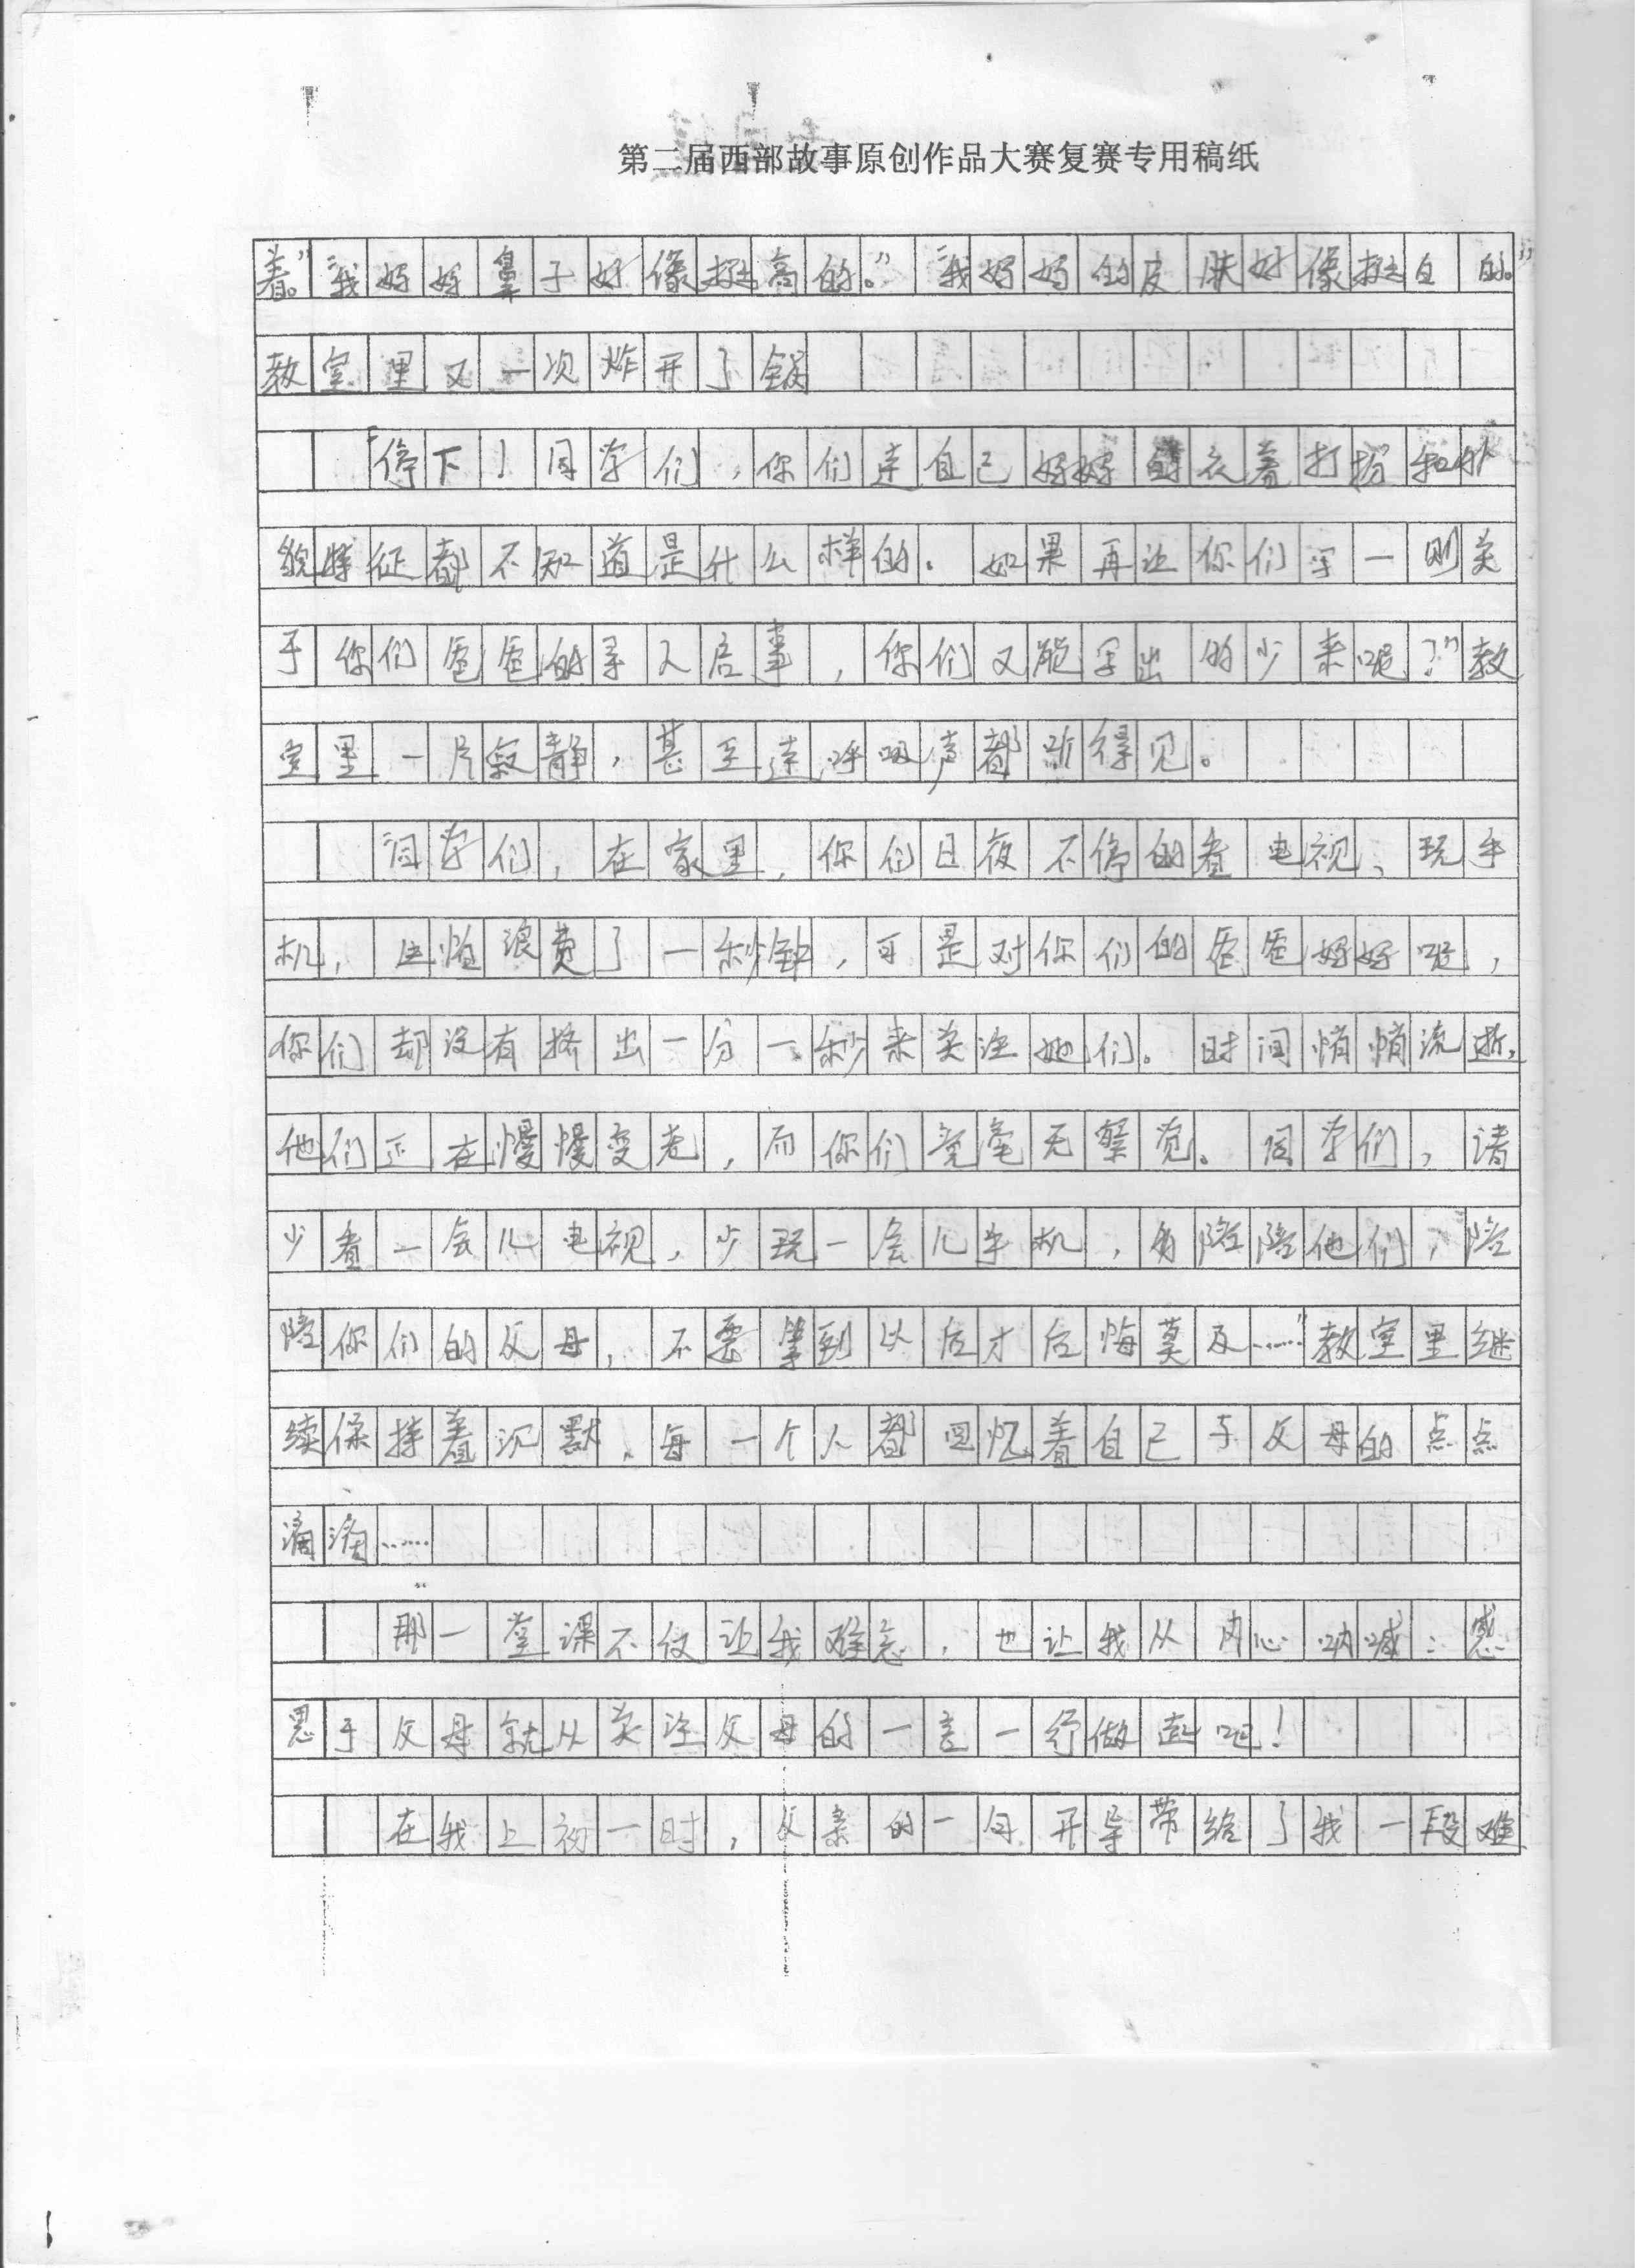 第二届西部故事原创作品大赛复赛专用稿纸
着。”“我妈妈鼻子好像挺高的。”“我妈妈的皮肤好像挺白的。”
教室里又一次炸开了锅
“停下！同学们，你们连自己妈妈的衣着打扮和外
貌特征都不知道是什么样的。如果再让你们写一则关
于你们爸爸的寻人启事，你们又能写出多少来呢？”教
室里一片寂静，甚至连呼吸声都听得见。
“同学们，在家里，你们日夜不停的看电视、玩手
机，生怕浪费了一秒钟，可是对你们的爸爸妈妈呢，
你们却没有挤出一分一秒来关注她们。时间悄悄流逝，
他们正在慢慢变老，而你们竟毫无察觉。同学们，请
少看一会儿电视，少玩一会儿手机，多陪陪他们，陪
陪你们的父母，不要等到以后才后悔莫及……”教室里继
续保持着沉默，每一个人都回忆着自己与父母的点点
滴滴……
那一堂课不仅让我难忘，也让我从内心呐喊：感
恩于父母就从关注父母的一言一行做起吧！
在我上初一时，父亲的一句开导带给了我一段难